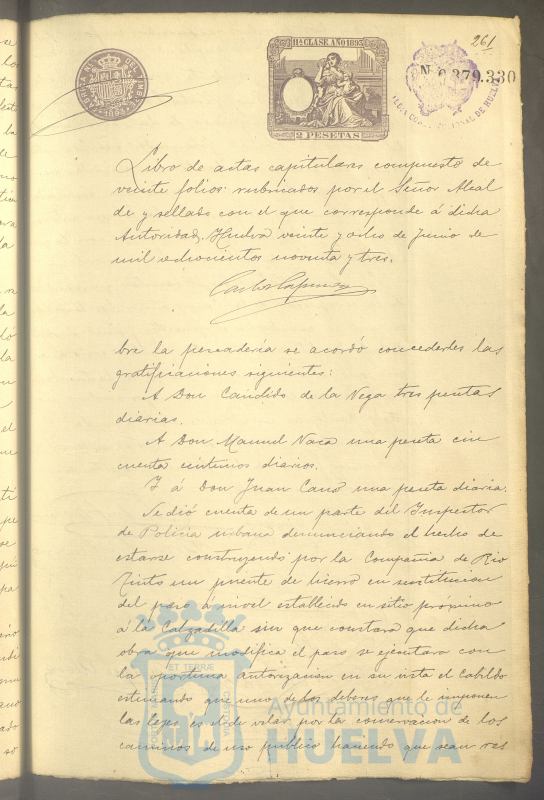 261
11ª CLASE AÑO 1893
N. 0.379.330
2 PESETAS
Libro de actas capitulares compuesto de
veinte folios rubricados por el Señor Alcal
de y sellado con el que corresponde á dicha
Autoridad. Huelva veinte y ocho de Junio de
mil ochocientos noventa y tres.
bre la pescadería se acordó concederles las
gratificaciones siguientes:
A Don Candido de la Vega tres pesetas
diarias.
A Don Manuel Vaca una peseta cin
cuenta centimos diarios.
Y á Don Juan Cano una peseta diaria.
Se dió cuenta de un parte del Inspector
de Policia urbana denunciando el hecho de
estarse construyendo por la Compañia de Rio
Tinto un puente de hierro en sustitucion
del paso á nivel establecido en sitio próximo
á la Calzadilla sin que constara que dicha
obra que modifica el paso se ejecutara con
la oportuna autorizacion en su vista el Cabildo
estimando que uno de los deberes que le imponen
las leyes es el de velar por la conservacion de los
caminos de uso publico haciendo que sean res
Ayuntamiento de
HUELVA